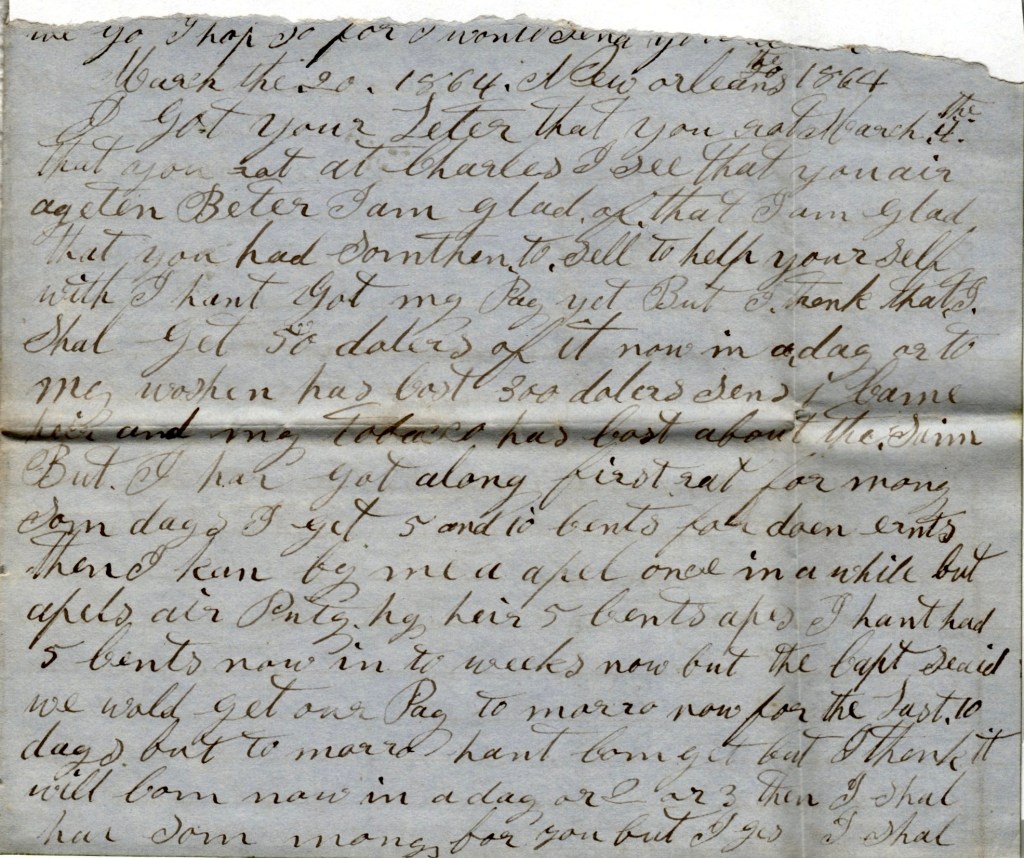 we go I hop so for I would send you
March the 20. 1864. New orleans the 20 1864
I Got your Leter that you rot March the 4.
that you rot at Charles I see that you air
ageten Beter I am glad of that I am Glad
that you had somthen to sell to help your self
with I hant Got my Pay yet But I thenk that I
Shal Get 50 dolers of it now in a day or to
my woshen has cost 300 dolers sens i came
heir and my tobaco has cost about the saim
But I hav Got along first rat for mony
som days I get 5 and 10 cents for doen ernts
then I kan by me a apel once in a while but
apels air Prity hy heir 5 cents apes I hant had
5 cents now in to weeks now but the Capt seaid
we wold get our Pay to morro now for the Last 10
days but to morro hant com yet but I thenk it
will com now in a day or 2 or 3 then I shal
hav som mony for you but I ges I shal